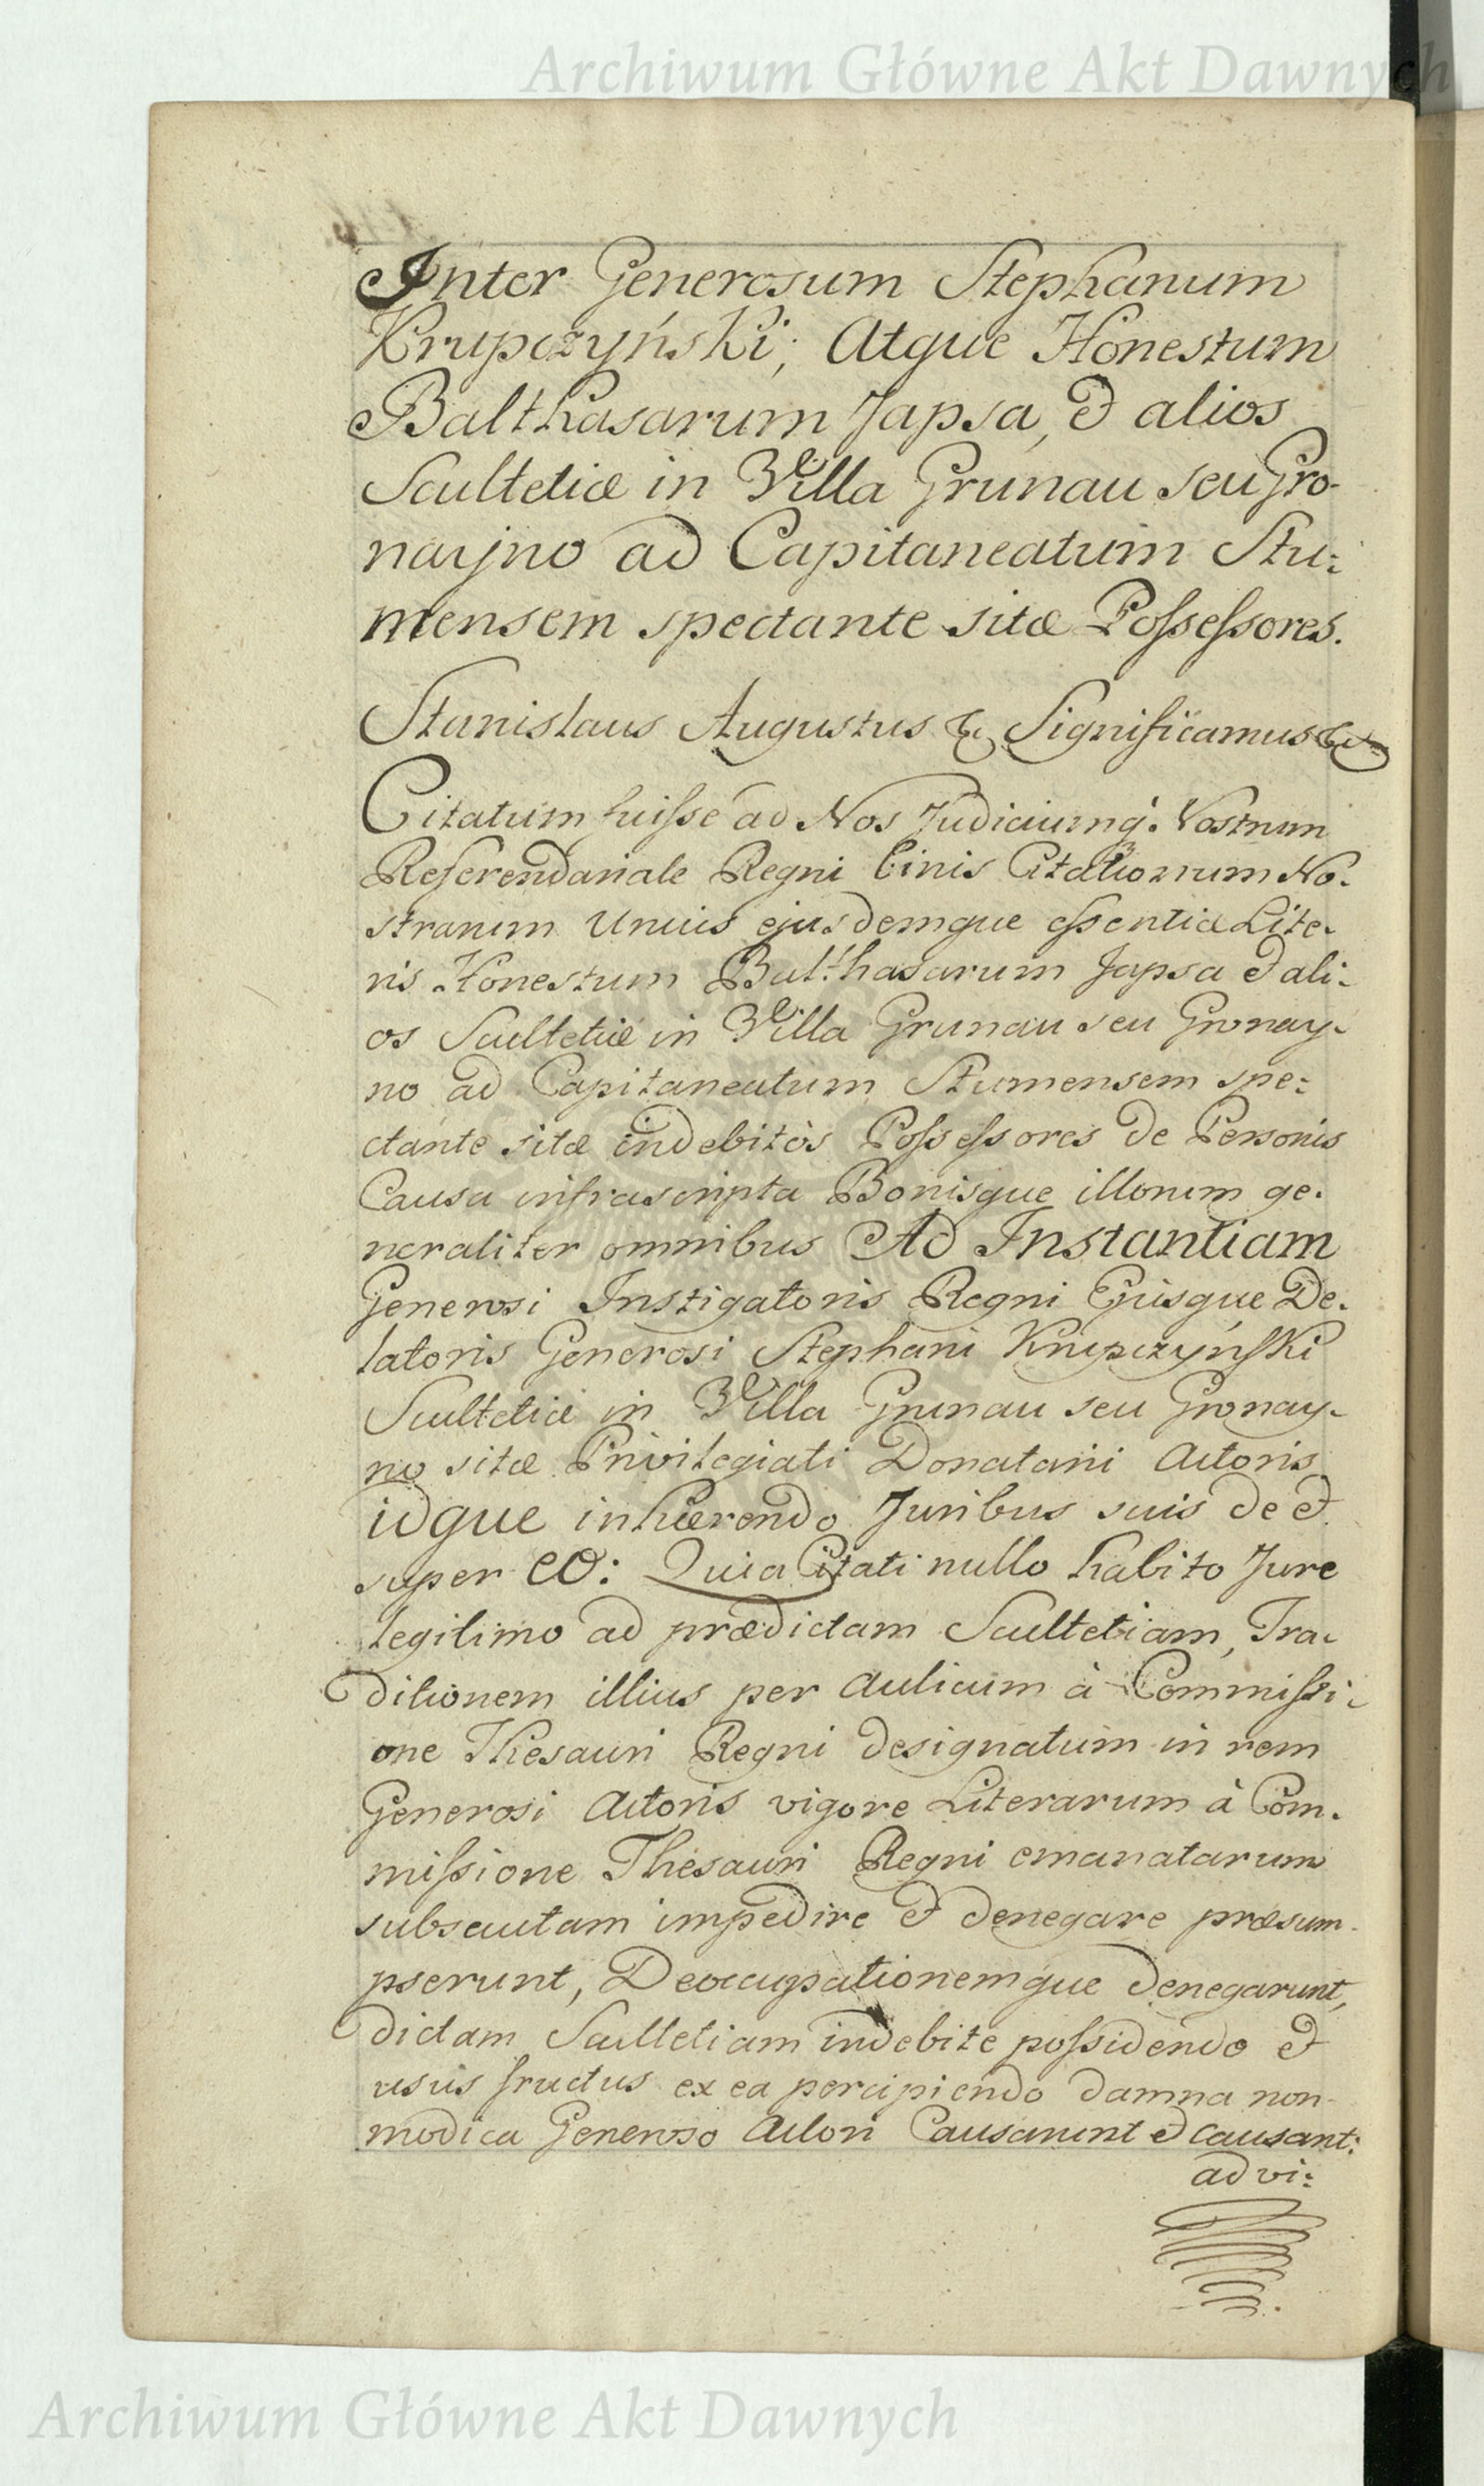 Archiwum Główne Akt Dawnych
Inter Generosum Stephanum
Krupczyński; Atque Honestum
Balthasarum Japsa, & alios
Scultetiæ in Villa Grunau seu Gro-
nayno ad Capitaneatum Stu:
mensem spectante sitæ Possessores.
Stanislaus Augustus &c Significamus &c
Citatum fuisse ad Nos Judiciumq. Nostrum
Referendariale Regni binis Citationum No-
strarum unius ejusdemque essentiæ Lite-
ris Honestum Balthasarum Japsa & ali-
os Scultetiæ in Villa Grunau seu Gronay-
no ad Capitaneatum Stumensem spe:
ctante sitæ indebitos Possessores de Personis
Causa infrascripta Bonisque illorum ge-
neraliter omnibus Ad Instantiam
Generosi Instigatoris Regni Ejusque De-
latoris Generosi Stephani Krupczyński
Scultetiæ in Villa Grunau seu Gronay-
no sitæ Privilegiati Donatarii Actoris
idque inhærendo Juribus suis de &
super eo: Quia Citati nullo habito Jure
legitimo ad prædictam Scultetiam, Tra-
ditionem illius per Aulicum à Commissi-
one Thesauri Regni designatum in rem
Generosi Actoris vigore Literarum à Com-
missione Thesauri Regni emanatarum
subsecutam impedire & denegare præsum-
pserunt, Deoccupationemque denegarunt,
dictam Scultetiam indebite possidendo &
usus fructus ex ea percipiendo damna non-
modica Generoso Actori Causarunt & causant:
ad vi:
Archiwum Główne Akt Dawnych